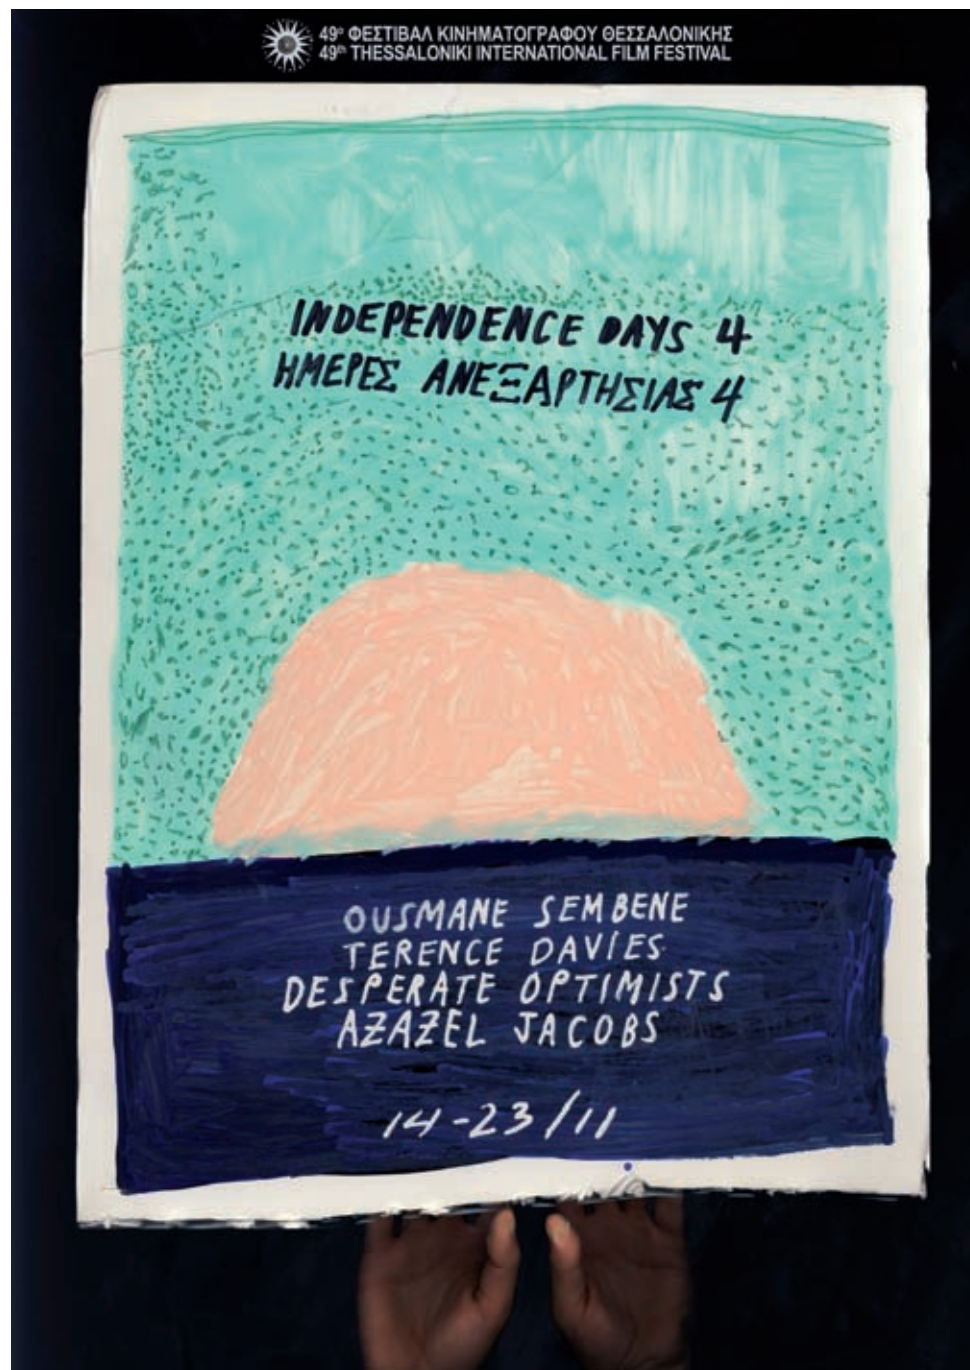 49ο ΦΕΣΤΙΒΑΛ ΚΙΝΗΜΑΤΟΓΡΑΦΟΥ ΘΕΣΣΑΛΟΝΙΚΗΣ
49th THESSALONIKI INTERNATIONAL FILM FESTIVAL
INDEPENDENCE DAYS 4
ΗΜΕΡΕΣ ΑΝΕΞΑΡΤΗΣΙΑΣ 4
OUSMANE SEMBENE
TERENCE DAVIES
DESPERATE OPTIMISTS
AZAZEL JACOBS
14-23/11